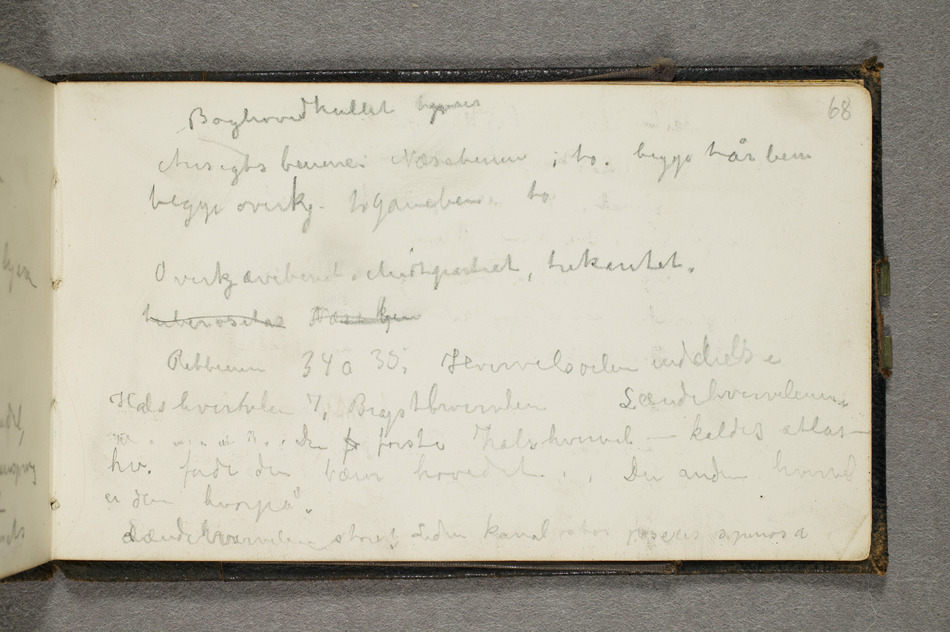 68
Baghovedhullet
Ansigts benene: Næsebenen, to. begge tårben
begge overkj. to ganeben. to
Overkjævebenet. Midtpartiet, trekantet.
tuberositas Næseben
Ribbenen 34 a 35, Hvirvelsøilen inddeles i
Halshvirvlen 7, Brysthvirvlen Lændehvirvlerne
Den første halshvirvel – kaldes atlas –
hv. fordi den bærer hovedet. Den anden hvirvel
er den hvorpå
Lændehvirvlen størst. Siden kanal spinosa